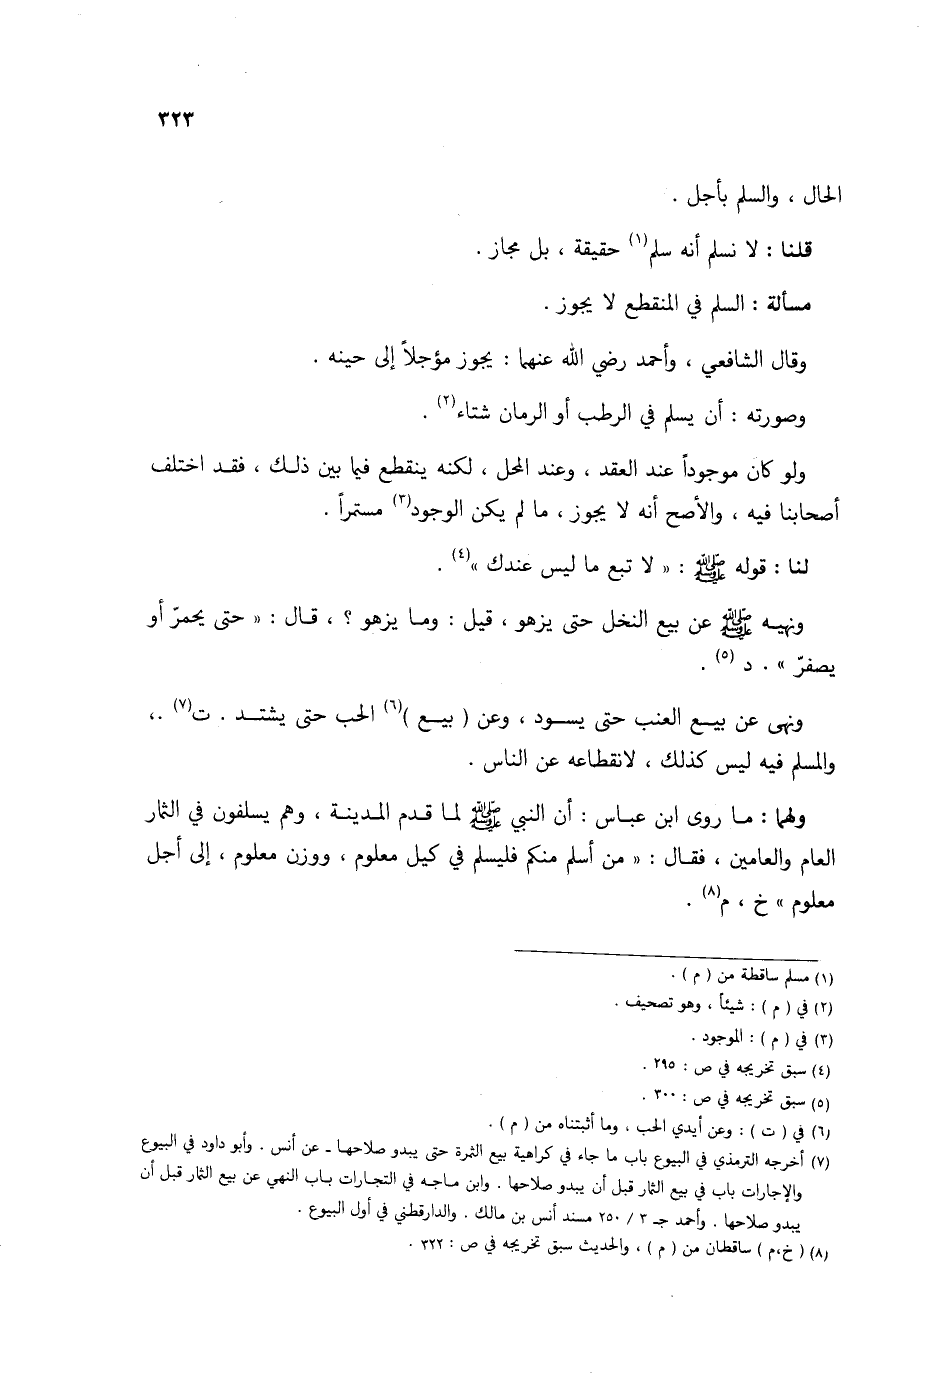 ٣٢٣
الحال ، والسلم بأجل .
قلنا : لا نسلم أنه سلم(١) حقيقة ، بل مجاز .
مسألة : السلم في المنقطع لا يجوز .
وقال الشافعي ، وأحمد رضي الله عنهما : يجوز مؤجلاً إلى حينه .
وصورته : أن يسلم في الرطب أو الرمان شتاء(٢) .
ولو كان موجوداً عند العقد ، وعند المحل ، لكنه ينقطع فيما بين ذلك ، فقد اختلف
أصحابنا فيه ، والأصح أنه لا يجوز ، ما لم يكن الوجود(٣) مستمراً .
لنا : قوله ﷺ : « لا تبع ما ليس عندك »(٤) .
ونهيه ﷺ عن بيع النخل حتى يزهو ، قيل : وما يزهو ؟ ، قال : « حتى يحمرّ أو
يصفرّ » . د (٥) .
ونهى عن بيع العنب حتى يسود ، وعن ( بيع )(٦) الحب حتى يشتد . ت(٧) .،
والمسلم فيه ليس كذلك ، لانقطاعه عن الناس .
ولهما : ما روى ابن عباس : أن النبي ﷺ لما قدم المدينة ، وهم يسلفون في الثمار
العام والعامين ، فقال : « من أسلم منكم فليسلم في كيل معلوم ، ووزن معلوم ، إلى أجل
معلوم » خ ، م(٨) .
(١) مسلم ساقطة من ( م ) .
(٢) في ( م ) : شيئاً ، وهو تصحيف .
(٣) في ( م ) : الموجود .
(٤) سبق تخريجه في ص : ٢٩٥ .
(٥) سبق تخريجه في ص : ٣٠٠ .
(٦) في ( ت ) : وعن أيدي الحب ، وما أثبتناه من ( م ) .
(٧) أخرجه الترمذي في البيوع باب ما جاء في كراهية بيع الثمرة حتى يبدو صلاحها ـ عن أنس . وأبو داود في البيوع
والإجارات باب في بيع الثمار قبل أن يبدو صلاحها . وابن ماجه في التجارات باب النهي عن بيع الثمار قبل أن
يبدو صلاحها . وأحمد جـ ٣ / ٢٥٠ مسند أنس بن مالك . والدارقطني في أول البيوع .
(٨) ( خ،م ) ساقطان من ( م ) ، والحديث سبق تخريجه في ص : ٣٢٢ .